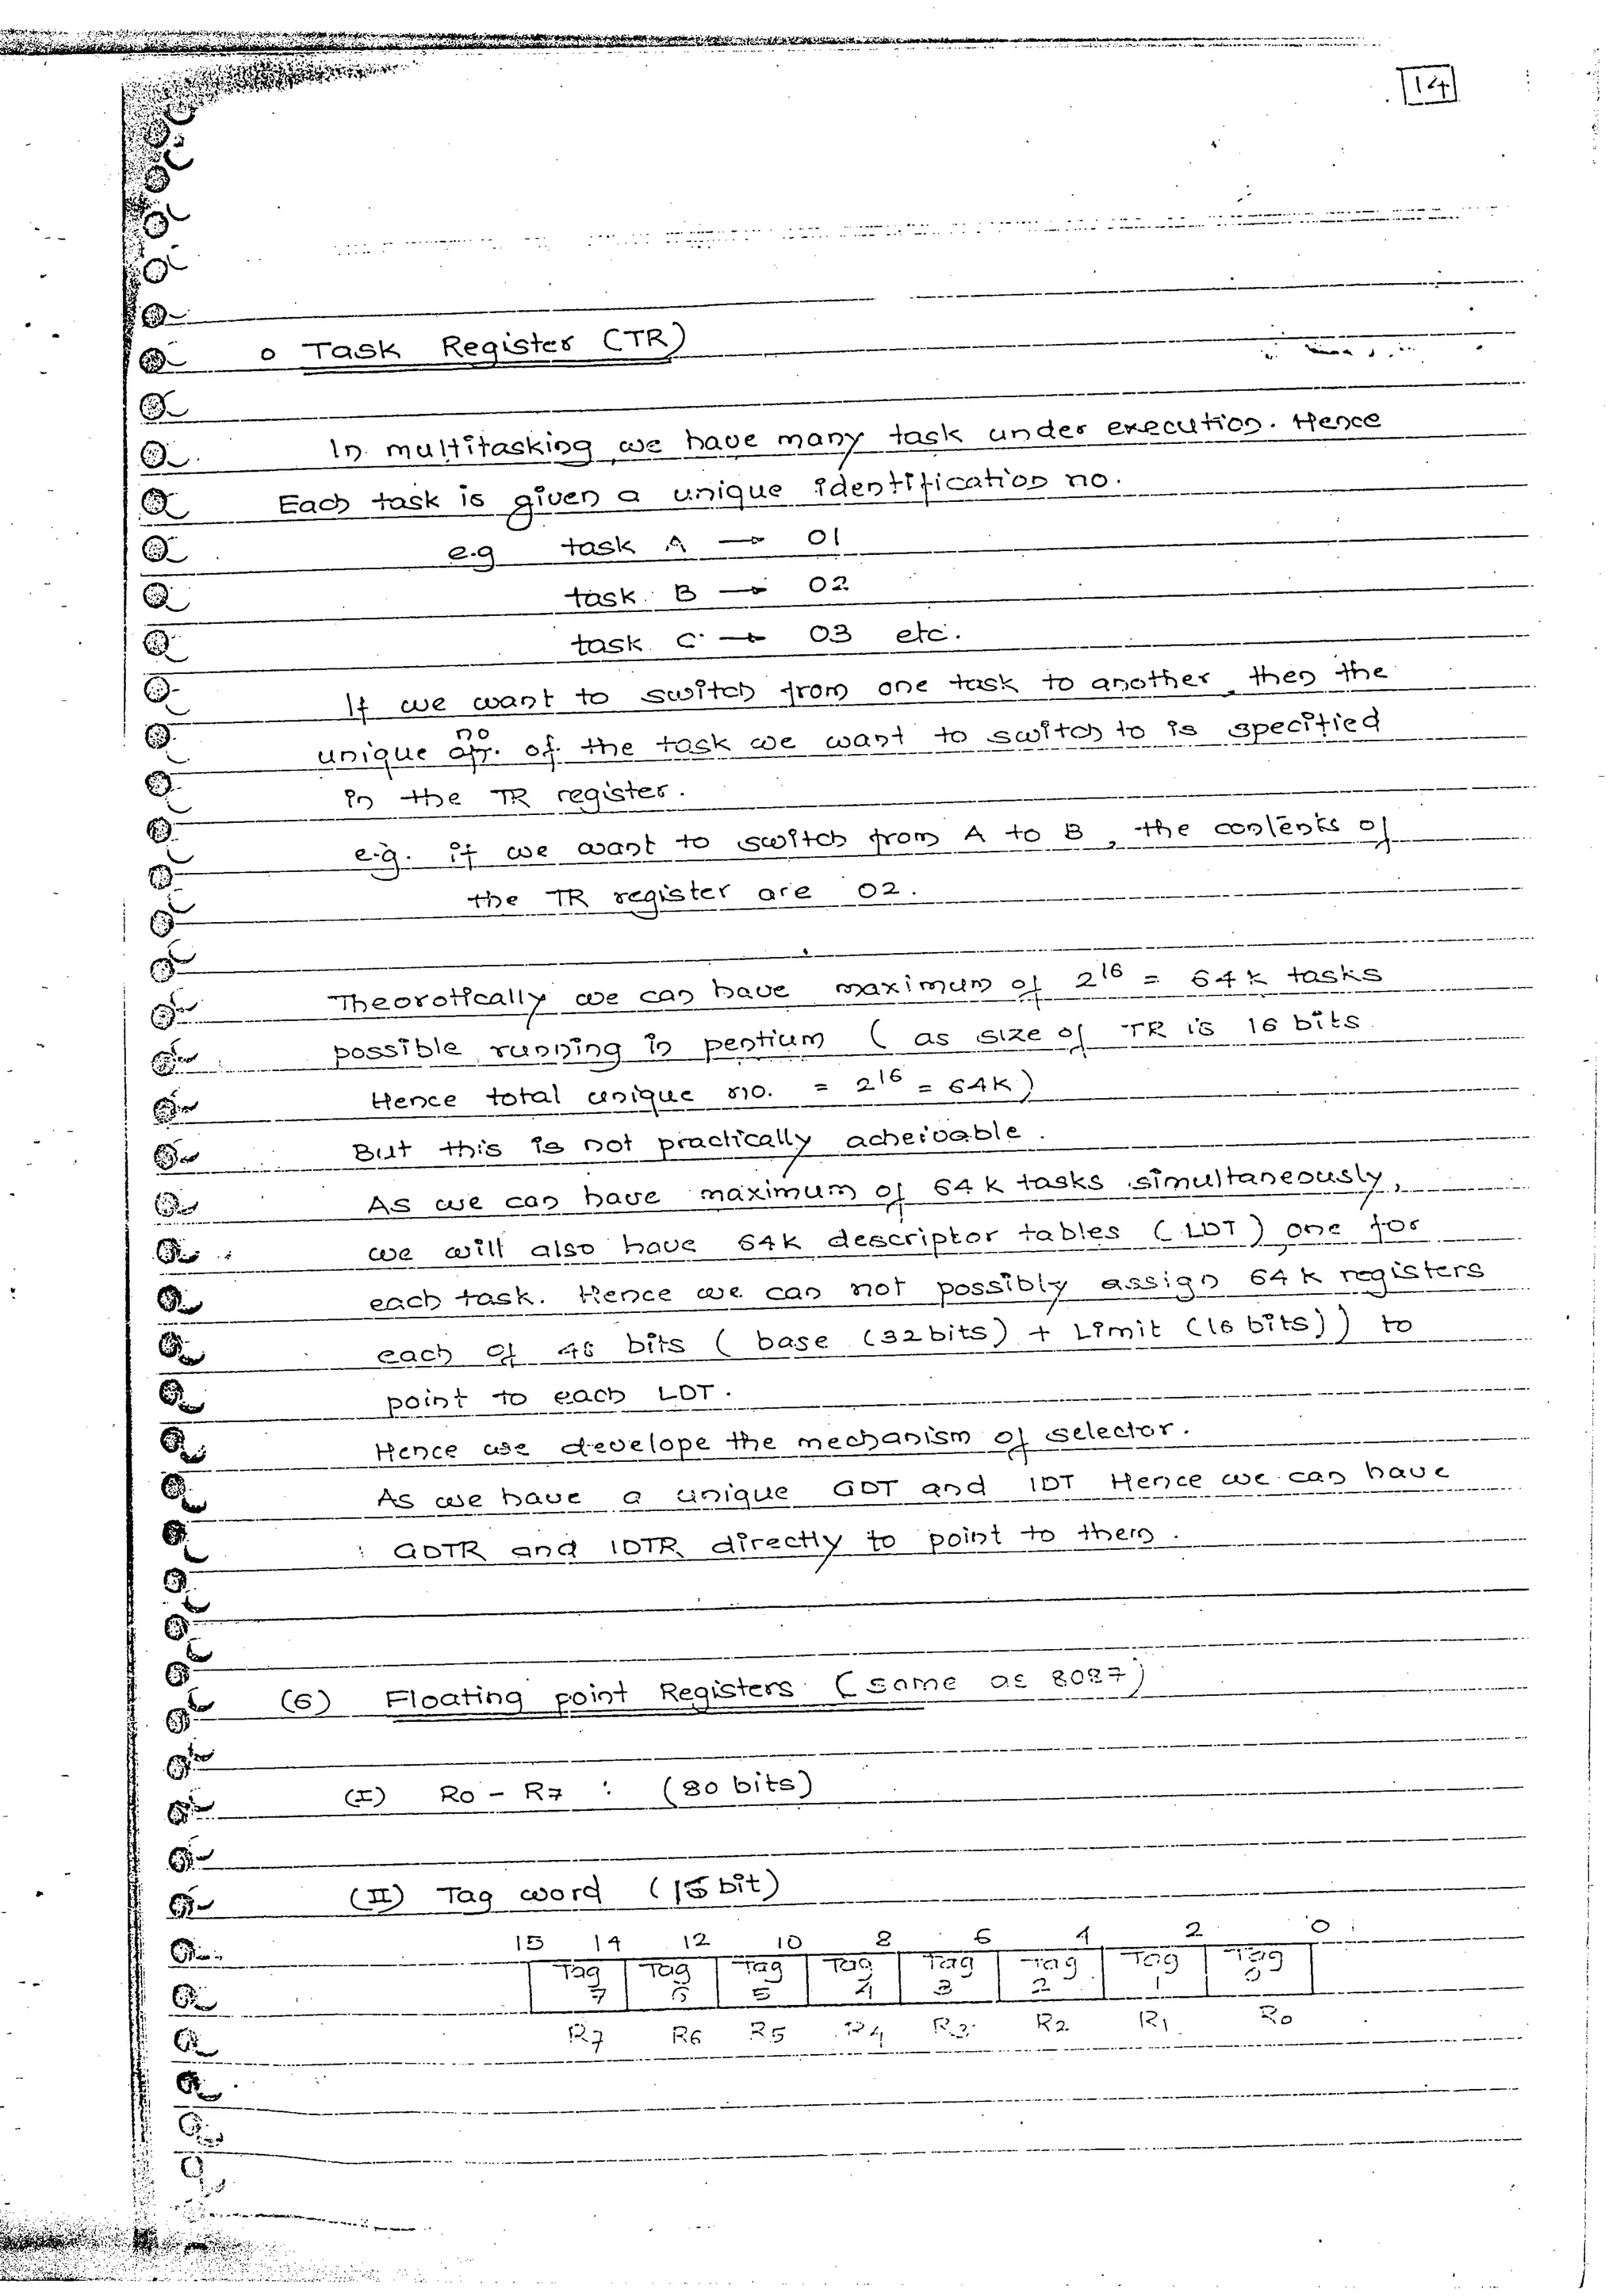 14
o Task Register (TR)
In multitasking, we have many task under execution. Hence
Each task is given a unique identification no.
e.g task A → 01
task B → 02
task C → 03 etc.
If we want to switch from one task to another, then the
no
unique of the task we want to switch to is specified
in the TR register.
e.g. if we want to switch from A to B, the contents of
the TR register are 02.
Theorotically we can have maximum of 2^16 = 64k tasks
possible running in pentium ( as size of TR is 16 bits
Hence total unique no. = 2^16 = 64K)
But this is not practically acheivable.
As we can have maximum of 64 k tasks simultaneously,
we will also have 64k descriptor tables (LDT) one for
each task. Hence we can not possibly assign 64 k registers
each of 48 bits ( base (32 bits) + Limit (16 bits)) to
point to each LDT.
Hence we develope the mechanism of selector.
As we have a unique GDT and IDT Hence we can have
GDTR and IDTR directly to point to them.
(6) Floating point Registers (same as 8087)
(I) R0 - R7 : (80 bits)
(II) Tag word (16 bit)
15 14 12 10 8 6 4 2 0
Tag Tag Tag Tag Tag Tag Tag Tag
7 6 5 4 3 2 1 0
R7 R6 R5 R4 R3 R2 R1 R0